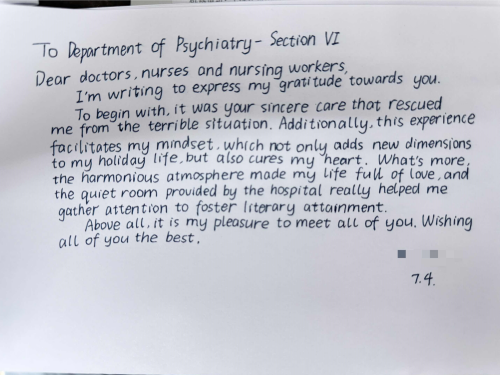 To Department of Psychiatry - Section VI
Dear doctors, nurses and nursing workers,
I'm writing to express my gratitude towards you.
To begin with, it was your sincere care that rescued
me from the terrible situation. Additionally, this experience
facilitates my mindset, which not only adds new dimensions
to my holiday life, but also cures my heart. What's more,
the harmonious atmosphere made my life full of love, and
the quiet room provided by the hospital really helped me
gather attention to foster literary attainment.
Above all, it is my pleasure to meet all of you. Wishing
all of you the best.
7.4.